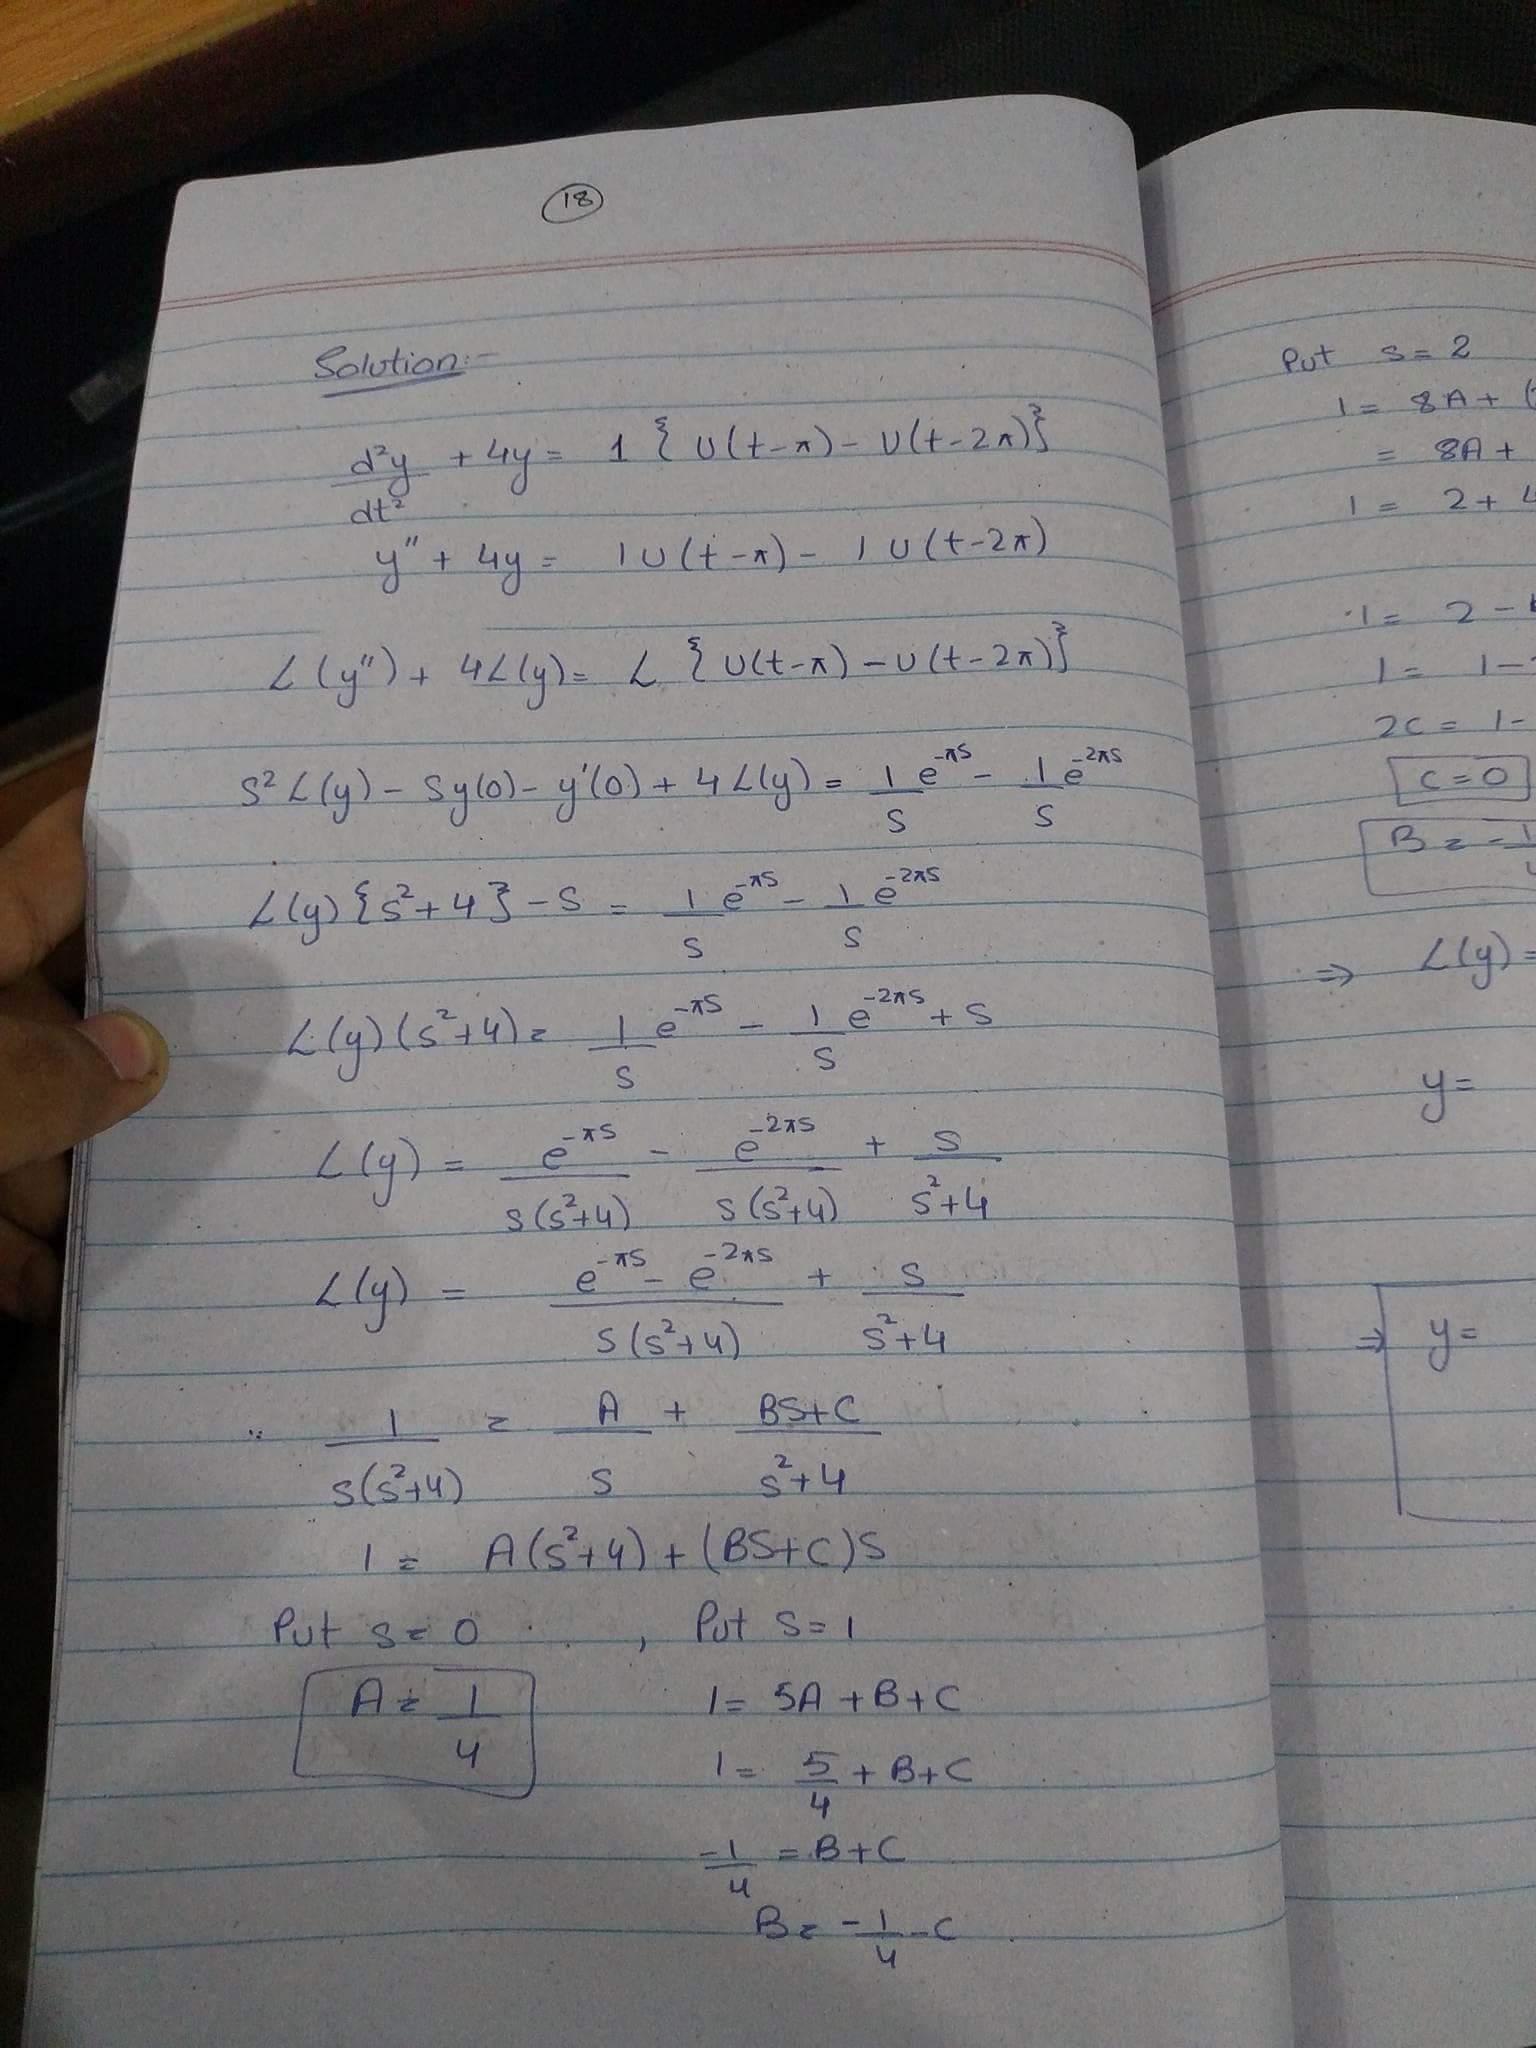 18
Solution:-
d²y/dt² + 4y = 1 {U(t-π) - U(t-2π)}
y" + 4y = 1U(t-π) - 1U(t-2π)
L(y") + 4L(y) = L {U(t-π) - U(t-2π)}
S²L(y) - Sy(0) - y'(0) + 4L(y) = 1/S e^-πS - 1/S e^-2πS
L(y){S²+4} - S = 1/S e^-πS - 1/S e^-2πS
L(y)(S²+4) = 1/S e^-πS - 1/S e^-2πS + S
L(y) = e^-πS/S(S²+4) - e^-2πS/S(S²+4) + S/S²+4
L(y) = e^-πS - e^-2πS/S(S²+4) + S/S²+4
∵ 1/S(S²+4) = A/S + BS+C/S²+4
1 = A(S²+4) + (BS+C)S
Put S=0 , Put S=1
A = 1/4
1 = 5A + B + C
1 = 5/4 + B + C
-1/4 = B + C
B = -1/4 - C
Put S=2
1 = 8A + (
= 8A +
1 = 2 +
1 = 2 -
1 = 1 -
2C = 1 -
C = 0
B = -1/4
⇒ L(y) =
y =
⇒ y =